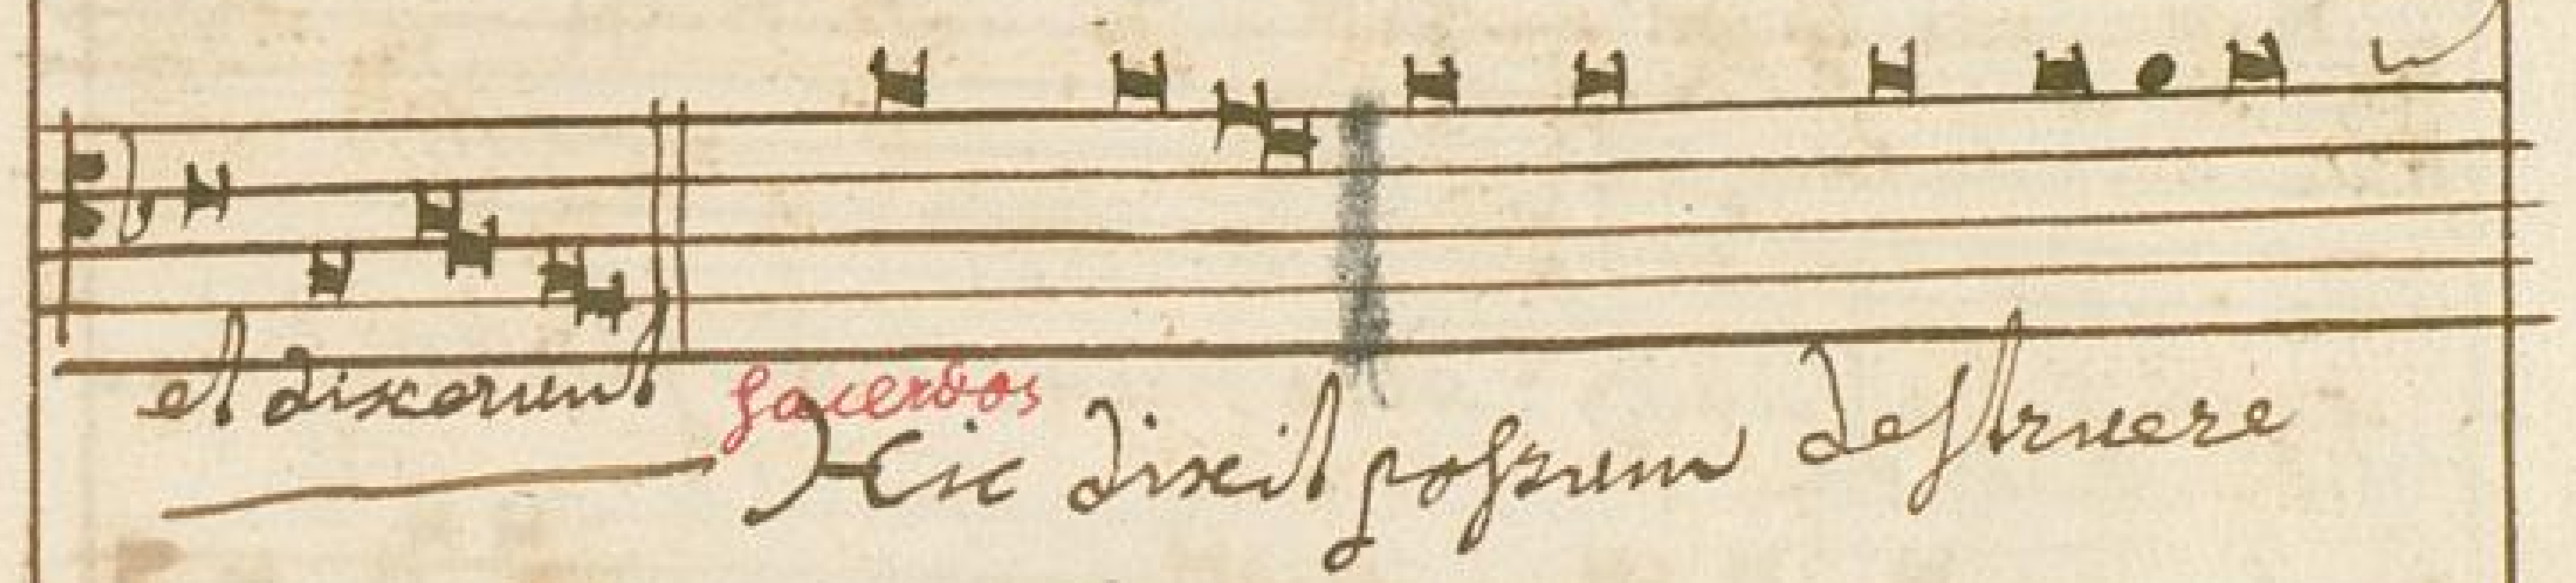 et dixerunt sacerdos
Hic dixit possum destruere